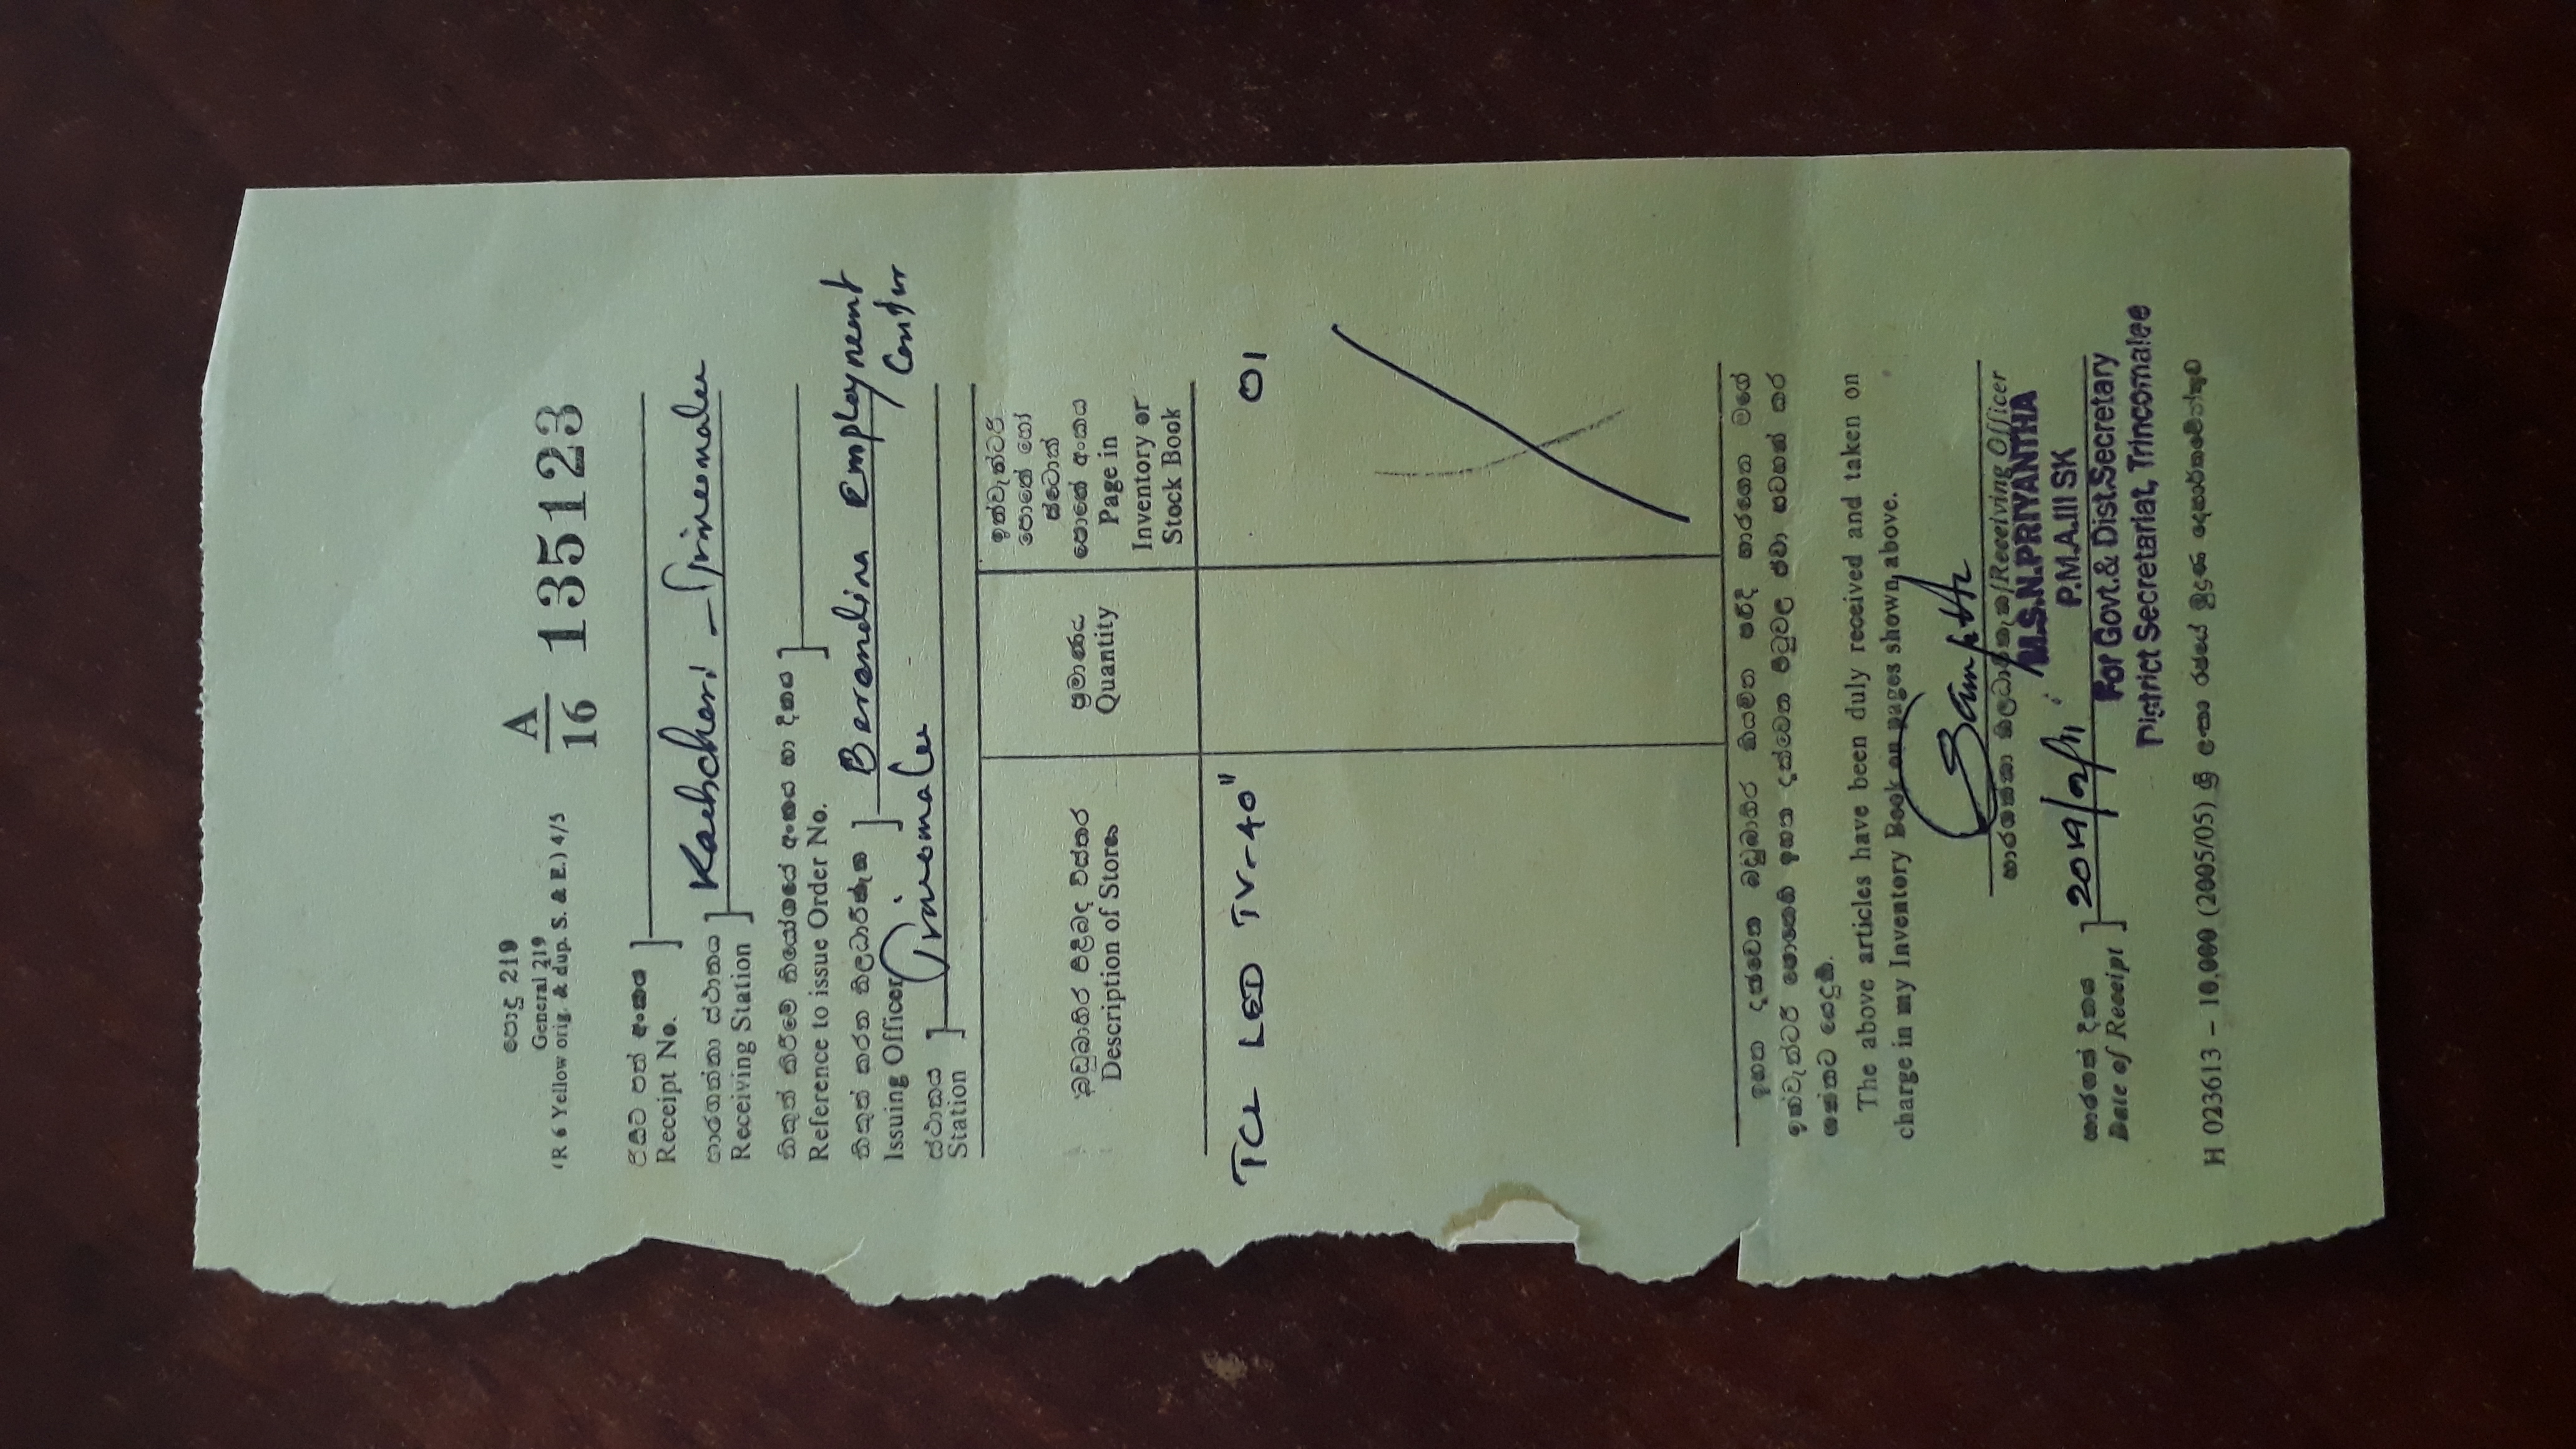 පොදු 219
General 219
(R 6 Yellow orig. & dup. S. & E.) 4/5
A
16
135123
රිසිට් පත් අංකය
Receipt No.
භාරගන්නා ස්ථානය
Receiving Station
Kachcheri - Trincomalee
නිකුත් කිරීමේ නියෝගයේ අංකය හා දිනය
Reference to issue Order No.
නිකුත් කරන නිලධාරිතැන
Issuing Officer
Berendina Employment
Center
ස්ථානය
Station
Trincomalee
බඩුබාහිර පිළිබඳ විස්තර
Description of Stores
ප්‍රමාණය
Quantity
ඉන්වැන්ටරි
පොතේ හෝ
ස්ටොක්
පොතේ අංකය
Page in
Inventory or
Stock Book
TCL LED TV-40"
01
ඉහත දැක්වෙන බඩුබාහිර නියමිත පරිදි භාරගෙන මගේ
ඉන්වැන්ටරි පොතෙහි ඉහත දැක්වෙන පිටුවල ඒවා සටහන් කර
ගන්නට යෙදුණි.
The above articles have been duly received and taken on
charge in my Inventory Book on pages shown above.
භාරගන්නා නිලධාරිතැන/Receiving Officer
M.S.N.PRIYANTHA
P.M.A.III SK
For Govt.& Dist.Secretary
District Secretariat, Trincomalee
භාරගත් දිනය
Date of Receipt
2019/02/11
H 023613 – 10,000 (2005/05) ශ්‍රී ලංකා රජයේ මුද්‍රණ දෙපාර්තමේන්තුව